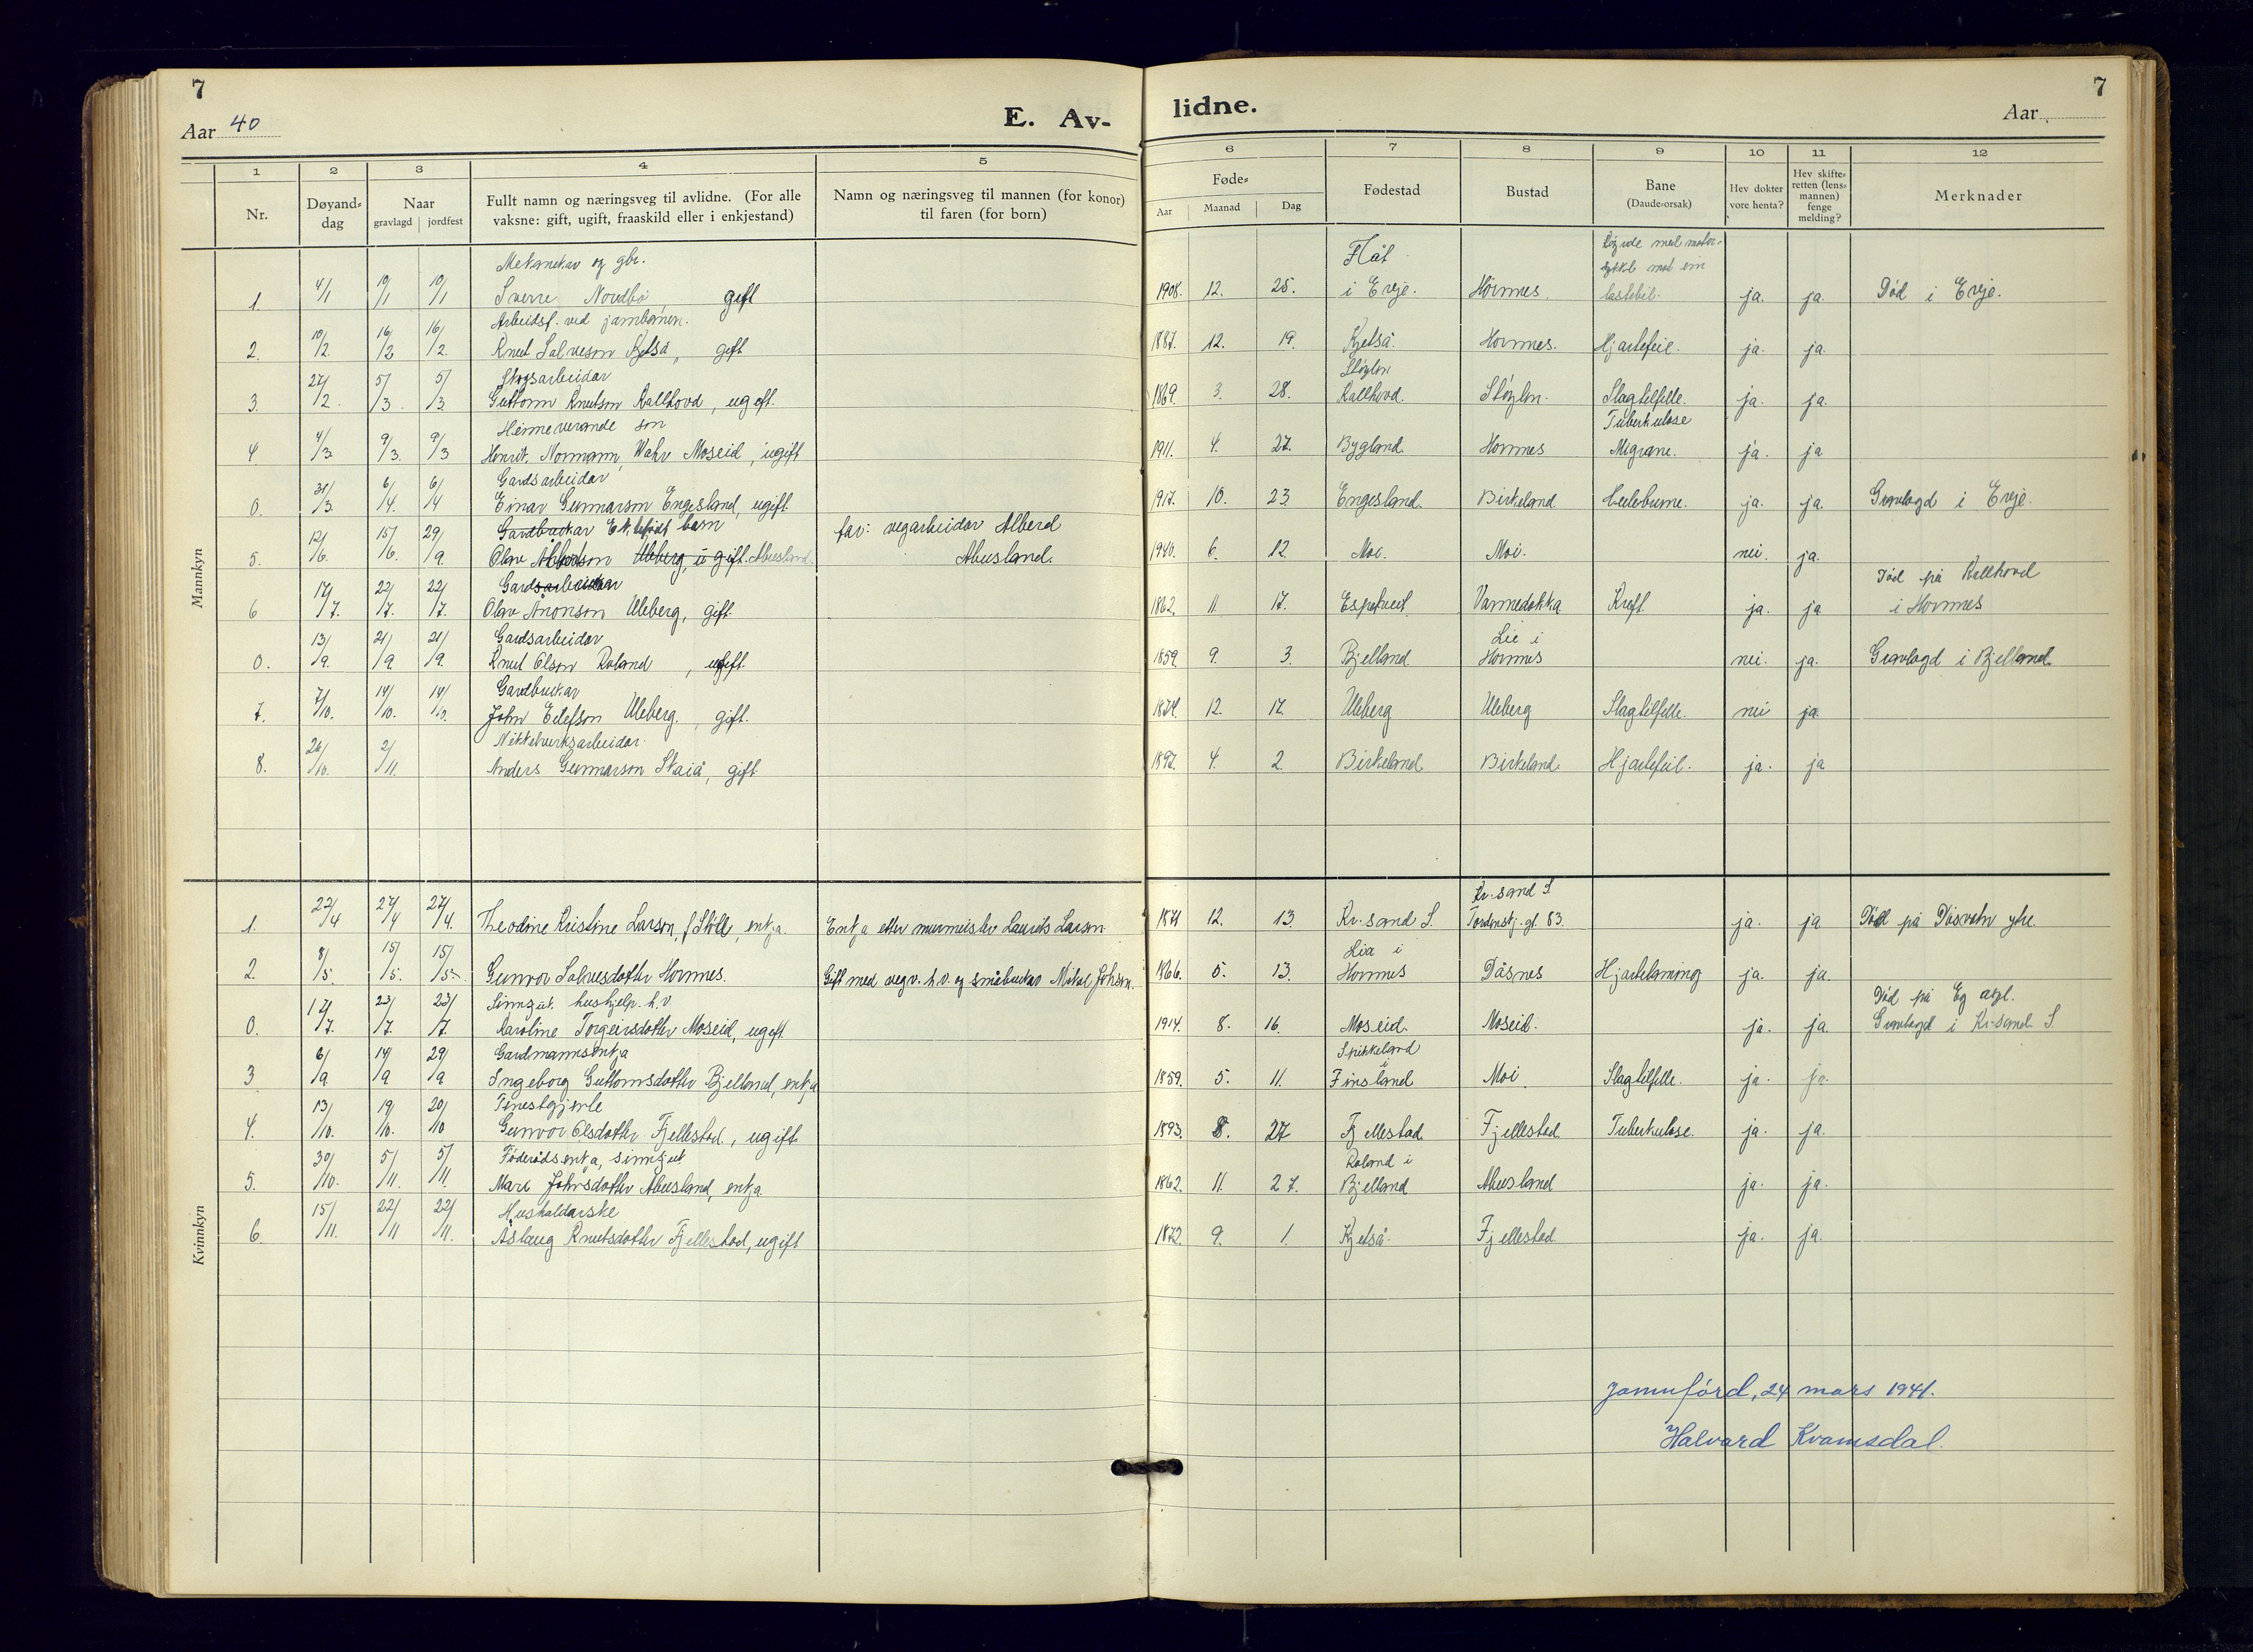 7
Aar 40
E. Av-
lidne.
7
Aar
1 2 3 4 5 6 7 8 9 10 11 12
Nr.
Døyand-
dag
Naar
gravlagd jordfest
Fullt namn og næringsveg til avlidne. (For alle
vaksne: gift, ugift, fraaskild eller i enkjestand)
Namn og næringsveg til mannen (for konor)
til faren (for born)
Føde-
Aar Maanad Dag
Fødestad
Bustad
Bane
(Daude-orsak)
Hev dokter
vore henta?
Hev skifte-
retten (lens-
mannen)
fenge
melding?
Merknader
Mannkyn
Mekanikar og gbr. Flåt med motor-
med ein
1. 4/1 10/1 10/1 Sverre Nordbø, gift 1908. 12. 25. i Evje. Hornnes. lastebil. ja. ja. Død i Evje.
Arbeidsf. ved jarnbanen.
2. 10/2 16/2 16/2. Knut Salveson Kjetså, gift 1887. 12. 19. Kjetså. Hornnes. Hjartefeil. ja. ja.
Skogsarbeidar Støylen
3. 27/2. 5/3. 5/3. Guttorm Knutson Kallhovd, ugift. 1869. 3. 28. Kallhovd. Støylen. Slagtilfelle. ja. ja.
Heimeverande son Tuberkulose
4 4/3. 9/3. 9/3 Henrik Normann Wahr Moseid, ugift 1911. 4. 27. Bygland. Hornnes Migrane. ja. ja
Gardsarbeidar
0. 31/3. 6/4. 6/4 Einar Gunnarson Engesland, ugift. 1917. 10. 23. Engesland. Birkeland Heileburne. ja. ja. Gravlagd i Evje.
Gardbrukar Ekt. barn far: vegarbeidar Alberd
5. 12/6. 15/6. 29/9. Olav Alberdson Uleberg, ugift. Abusland. Abusland. 1940. 6. 12 Moi. Moi. nei. ja.
Gardsarbeidar Død på Kallhovd
6 17/7. 22/7. 22/7. Olav Ånonson Uleberg, gift. 1862. 11. 17. Espetveit Vannedokka Kreft. ja. ja i Hornnes
Gardsarbeidar Lie i
0. 13/9. 21/9. 21/9. Knut Olson Roland, ugift. 1859. 9. 3. Bjelland. Hornnes nei. ja. Gravlagd i Bjelland.
Gardbrukar
7. 7/10. 14/10. 14/10. John Eilefson Uleberg, gift. 1874. 12. 17. Uleberg Uleberg Slagtilfelle. nei ja.
Nikkelverksarbeidar.
8. 26/10. 2/11. Anders Gunnarson Skaiå, gift. 1897. 4. 2. Birkeland Birkeland. Hjartefeil. ja. ja
Kvinnkyn
Kr.sand S.
1. 22/4 27/4 27/4. Theodine Kristine Larson, f. Stöle, enkja. Enkja etter murmeister Laurits Larson 1871 12. 13. Kr.sand S. Tordenskj. gt. 83. ja. ja Død på Dåsvatn ytre.
Lia i
2. 8/5. 15/5. 15/5. Gunvor Salvesdotter Hornnes. Gift med vegv. h.v. og småbrukar Mikal Johson. 1866. 5. 13. Hornnes Dåsnes Hjartelaming ja. ja.
Sinnsjuk hushjelp. h.v. Død på Eg asyl.
0. 17/7. 23/7. 23/7. Karoline Torgeirsdotter Moseid, ugift. 1914. 8. 16. Moseid. Moseid. ja. ja Gravlagd i Kr.sand S.
Gardmannsenkja Spikkeland i
3 6/9 14/9 29/9 Ingeborg Guttomsdotter Bjelland, enkja 1859. 5. 11. Finsland Moi Slagtilfelle. ja. ja.
Tenestgjente
4. 13/10. 19/10. 20/10 Gunvor Olsdotter Fjellestad, ugift 1893. 8. 27 Fjellestad Fjellestad Tuberkulose. ja. ja.
Føderådsenkja, sinnsjuk Roland i
5. 30/10. 5/11. 5/11. Mari Johnsdotter Abusland, enkja 1862. 11. 27. Bjelland Abusland ja. ja.
Hushaldarske
6. 15/11. 22/11 22/11. Åslaug Knutsdotter Fjellestad, ugift 1872. 9. 1. Kjetså. Fjellestad ja. ja.
Jamnførd, 24 mars 1941.
Halvard Kvamsdal.